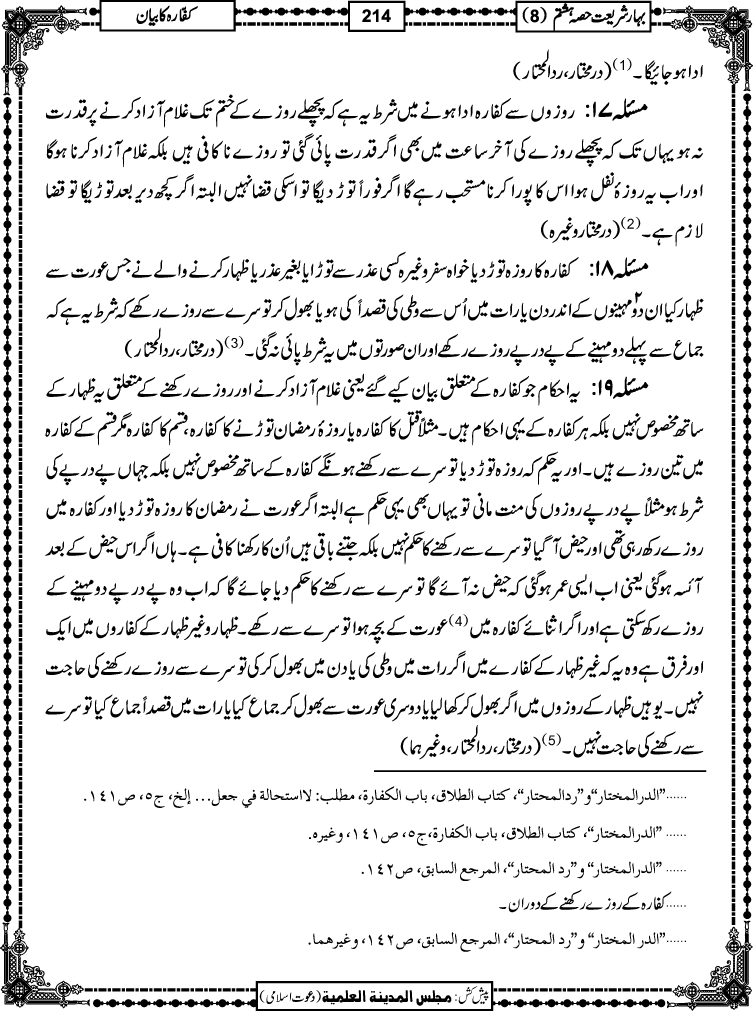 بہار شریعت حصہ ہشتم (8)
214
کفارہ کا بیان
ادا ہو جائیگا۔(1) (درمختار، ردالمحتار)
مسئلہ ۱۷: روزوں سے کفارہ ادا ہونے میں شرط یہ ہے کہ پچھلے روزے کے ختم تک غلام آزاد کرنے پر قدرت
نہ ہو یہاں تک کہ پچھلے روزے کی آخر ساعت میں بھی اگر قدرت پائی گئی تو روزے ناکافی ہیں بلکہ غلام آزاد کرنا ہوگا
اور اب یہ روزۂ نفل ہوا اس کا پورا کرنا مستحب رہے گا اگر فوراً توڑ دیگا تو اسکی قضا نہیں البتہ اگر کچھ دیر بعد توڑیگا تو قضا
لازم ہے۔(2) (درمختار وغیرہ)
مسئلہ ۱۸: کفارہ کا روزہ توڑ دیا خواہ سفر وغیرہ کسی عذر سے توڑا یا بغیر عذر یا ظہار کرنے والے نے جس عورت سے
ظہار کیا ان دو۲ مہینوں کے اندر دن یا رات میں اُس سے وطی کی قصداً کی ہو یا بھول کر تو سرے سے روزے رکھے کہ شرط یہ ہے کہ
جماع سے پہلے دو مہینے کے پے در پے روزے رکھے اور ان صورتوں میں یہ شرط پائی نہ گئی۔(3) (درمختار، ردالمحتار)
مسئلہ ۱۹: یہ احکام جو کفارہ کے متعلق بیان کیے گئے یعنی غلام آزاد کرنے اور روزے رکھنے کے متعلق یہ ظہار کے
ساتھ مخصوص نہیں بلکہ ہر کفارہ کے یہی احکام ہیں۔ مثلاً قتل کا کفارہ یا روزۂ رمضان توڑنے کا کفارہ، قسم کا کفارہ مگر قسم کے کفارہ
میں تین روزے ہیں۔ اور یہ حکم کہ روزہ توڑ دیا تو سرے سے رکھنے ہونگے کفارہ کے ساتھ مخصوص نہیں بلکہ جہاں پے در پے کی
شرط ہو مثلاً پے در پے روزوں کی منت مانی تو یہاں بھی یہی حکم ہے البتہ اگر عورت نے رمضان کا روزہ توڑ دیا اور کفارہ میں
روزے رکھ رہی تھی اور حیض آگیا تو سرے سے رکھنے کا حکم نہیں بلکہ جتنے باقی ہیں اُن کا رکھنا کافی ہے۔ ہاں اگر اس حیض کے بعد
آئسہ ہوگئی یعنی اب ایسی عمر ہوگئی کہ حیض نہ آئے گا تو سرے سے رکھنے کا حکم دیا جائے گا کہ اب وہ پے در پے دو مہینے کے
روزے رکھ سکتی ہے اور اگر اثنائے کفارہ میں(4) عورت کے بچہ ہوا تو سرے سے رکھے۔ ظہار وغیر ظہار کے کفاروں میں ایک
اور فرق ہے وہ یہ کہ غیر ظہار کے کفارے میں اگر رات میں وطی کی یا دن میں بھول کر کی تو سرے سے روزے رکھنے کی حاجت
نہیں۔ یو ہیں ظہار کے روزوں میں اگر بھول کر کھا لیا یا دوسری عورت سے بھول کر جماع کیا یا رات میں قصداً جماع کیا تو سرے
سے رکھنے کی حاجت نہیں۔(5) (درمختار، ردالمحتار، وغیرہما)
......"الدرالمختار" و"ردالمحتار"، کتاب الطلاق، باب الکفارة، مطلب: لااستحالة في جعل... إلخ، ج٥، ص١٤١.
...... "الدرالمختار"، کتاب الطلاق، باب الکفارة، ج٥، ص١٤١، وغیرہ.
...... "الدرالمختار" و"رد المحتار"، المرجع السابق، ص١٤٢.
......کفارہ کے روزے رکھنے کے دوران۔
......"الدر المختار" و"رد المحتار"، المرجع السابق، ص١٤٢، وغیرھما.
پیش کش: مجلس المدینة العلمیة (دعوت اسلامی)